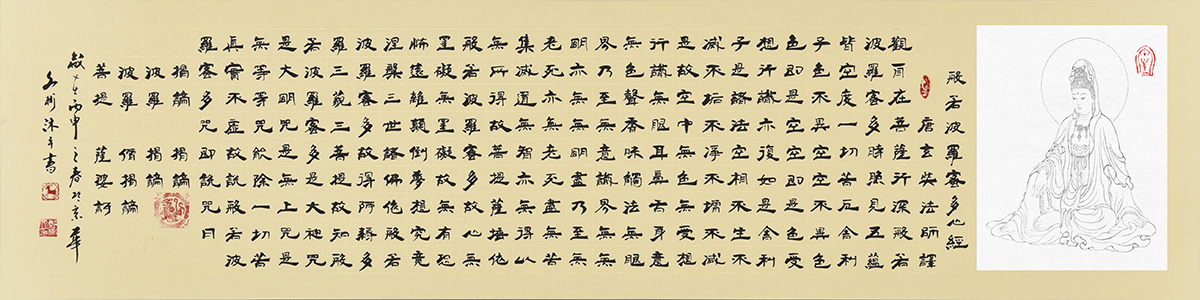 般若波羅蜜多心經
唐玄奘法師譯
觀自在菩薩行深般若
波羅蜜多時照見五蘊
皆空度一切苦厄舍利
子色不異空空不異色
色即是空空即是色受
想行識亦復如是舍利
子是諸法空相不生不
滅不垢不淨不增不減
是故空中無色無受想
行識無眼耳鼻舌身意
無色聲香味觸法無眼
界乃至無意識界無無
明亦無無明盡乃至無
老死亦無老死盡無苦
集滅道無智亦無得以
無所得故菩提薩埵依
般若波羅蜜多故心無
罣礙無罣礙故無有恐
怖遠離顛倒夢想究竟
涅槃三世諸佛依般若
波羅蜜多故得阿耨多
羅三藐三菩提故知般
若波羅蜜多是大神咒
是大明咒是無上咒是
無等等咒能除一切苦
真實不虛故說般若波
羅蜜多咒即說咒曰
揭諦 揭諦
波羅 揭諦
波羅 僧揭諦
菩提 薩婆訶
丙申之春於京華